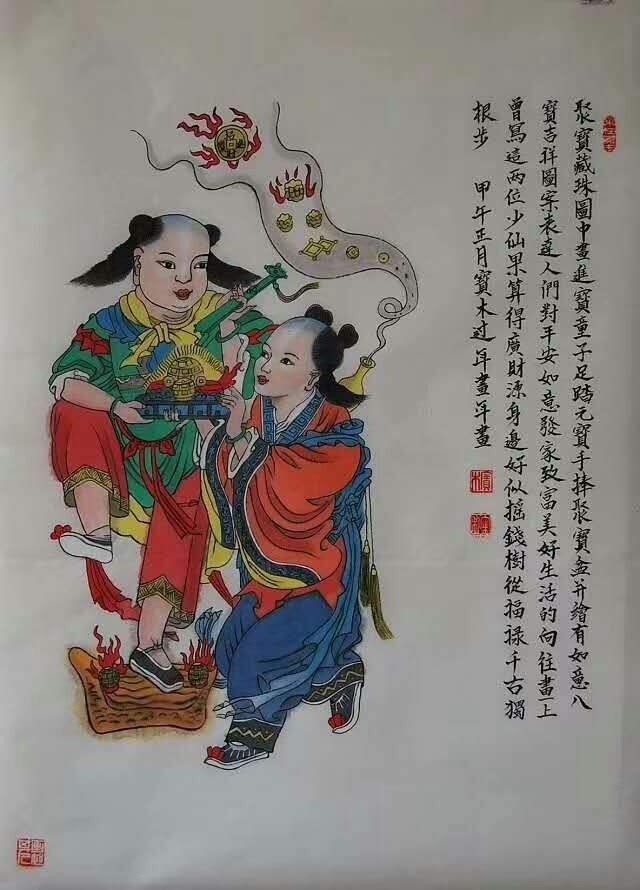 聚寶藏珠圖中畫進寶童子足踏元寶手捧聚寶盆并繪有如意八
寶吉祥圖案表達人們對平安如意發家致富美好生活的向往畫上
曾寫這兩位少仙果算得廣財源身邊好似搖錢樹從福祿千古獨
根步 甲午正月寶木过年畫年畫